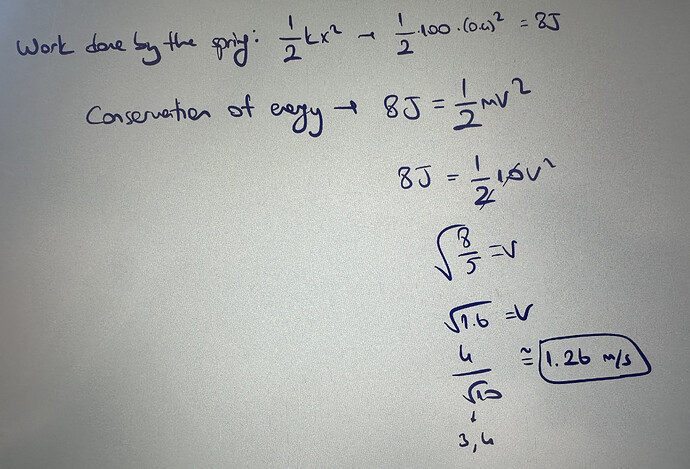 Work done by the spring: 1/2 kx² → 1/2 · 100 · (0.4)² = 8J
Conservation of energy → 8J = 1/2 mv²
8J = 1/2 10 v²
√(8/5) = v
√1.6 = v
4/√10 ≅ 1.26 m/s
3,4